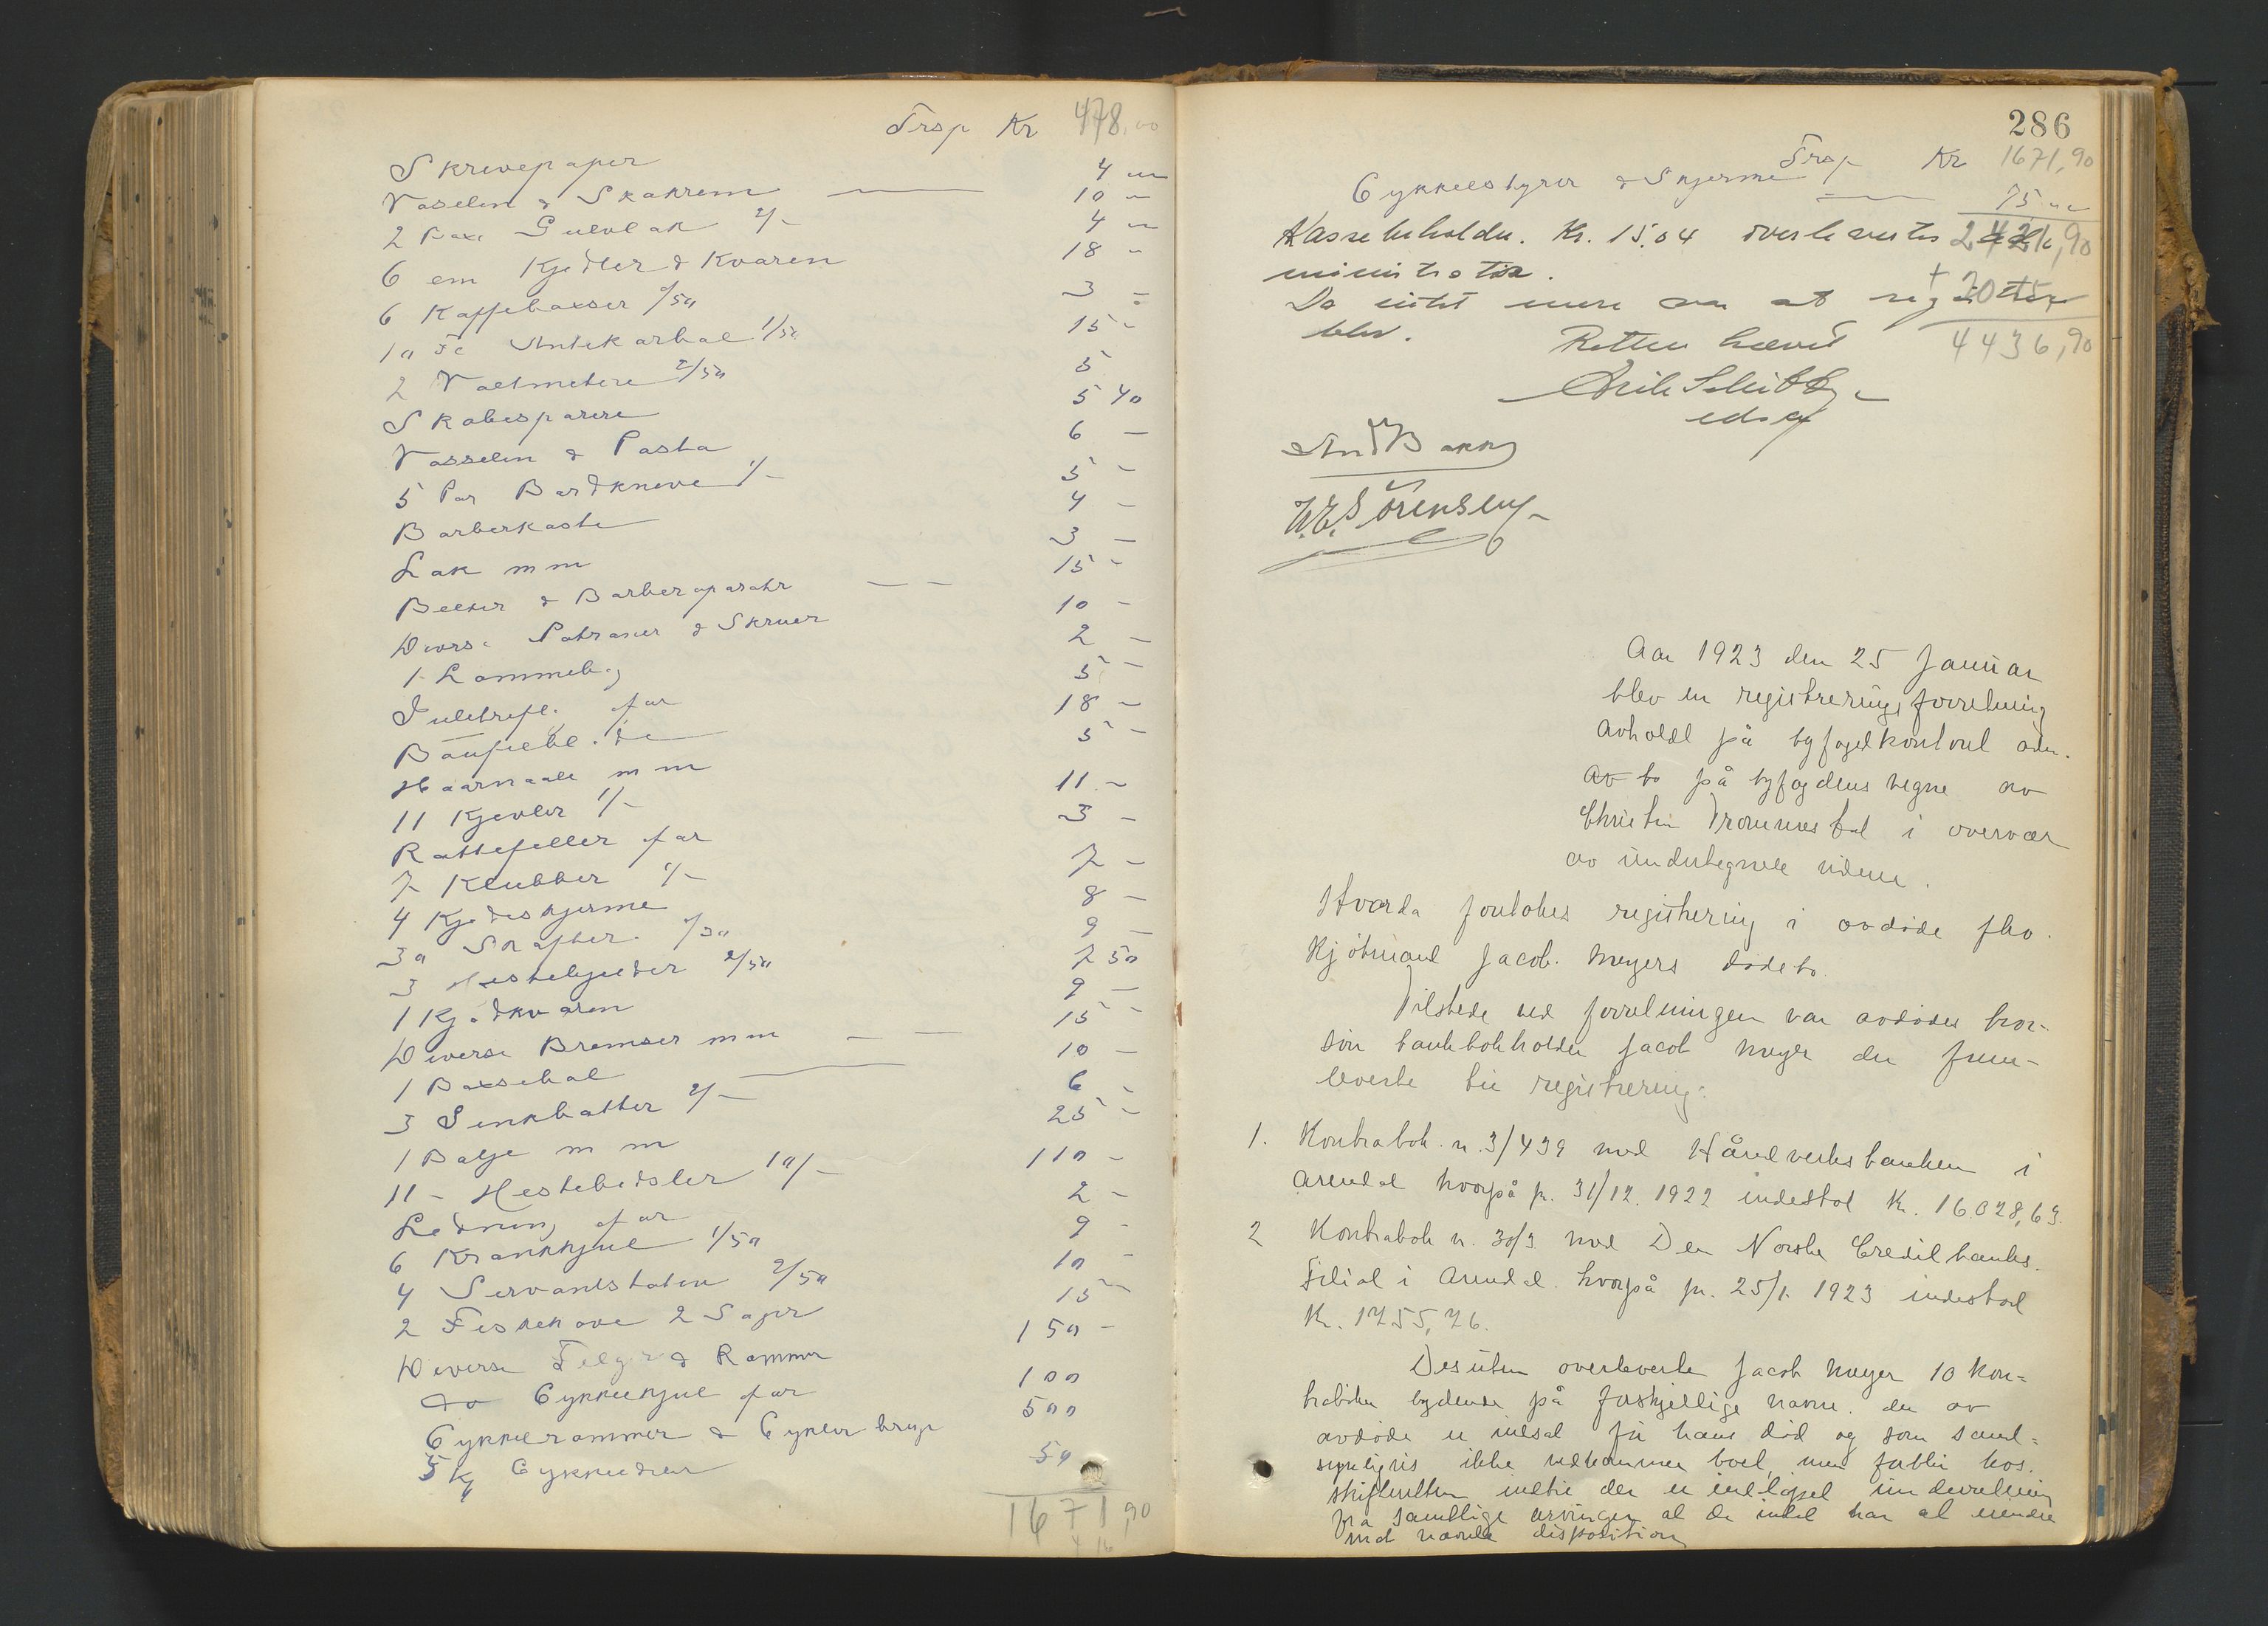 Trsp Kr 478,00
Skrivepapir 4 -
Vaselin & Skokrem 10 -
2 Gulvlak 2/- 4 -
6 em Kjedler & Kvaren 18 -
6 Kaffebaxser /50 3 -
10 Fl Antikarbol 1/50 15 -
2 Voltmetere 2/50 5
Skobesparere 5 40
Vasselin & Pasta 6 -
5 Par Bardknive 1/- 5 -
Barberkoste 4 -
Lak m m 3 -
Belter & Barberaparater 15 -
Divers. Patroner & Skruer 10 -
1 Lommeb. 2 -
Juletrefl. for 5 -
18 -
Haarnaale m m 5 -
11 Kjevler 1/- 11 -
Rottefeller for 3 -
7 Klubber 1/- 7 -
4 Kjedeskjerme 8 -
30 Skafter /30 9 -
3 Hestegjorder 2/50 7 50
1 Kjødkvaren 9 -
Diverse Bremser m m 15 -
1 Boxebal 10 -
3 Sinkbøtter 2/- 6 -
1 Balje m m 25 -
11 - Hestebidsler 10/- 110 -
Ledning for 2 -
6 Krankhjul 1/50 9 -
4 Servantstativ 2/50 10 -
2 Fiskehove 2 Soper 15 -
Diverse Felger & Rammer 150 -
do Cykkelhjul for 100
Cykkelrammer & Cykler brugt 500
5 Kg Cykkeldeler 50
1671,90
286
Trsp Kr 1671,90
Cykkelstyrer & Skjerme 75 -
Kassebeholdn. Kr. 15.04 overleveres 2421,90
ministrator.
Da intet mere var at reg
blev.
Retten hævet
4436,90
And Bakk
H.E. Sörensen
Aar 1923 den 25 Januar
blev en registreringsforretning
avholdt på byfogedkontoret adm.
av to på byfogdens vegne av
Christen Drommestad i overvær
av undertegnede vidne.
Hvorda foretokes registrering i avdøde fhv.
Kjøbmand Jacob Meyers dødsbo.
Tilstede ved forretningen var avdødes bror-
søn bankbokholder Jacob Meyer der frem-
leverte til registrering:
1. Kontrabok n. 3/439 med Håndverksbanken i
Arendal hvorpå pr. 31/12. 1922 indestod Kr. 16.028,63.
2 Kontrabok n. 30/3 med Den Norske Creditbanks
Filial i Arendal hvorpå pr. 25/1. 1923 indestod
Kr. 1755,76.
Desuten overleverte Jacob Meyer 10 kon-
trabøker lydende på forskjellige navne der av
avdøde er indsat før hans død og som sand-
synligvis ikke vedkommer boet, men forblir hos
skifteretten indtil der er indløpet underretning
fra samtlige arvinger at de intet har at erindre
mot nævnte disposition